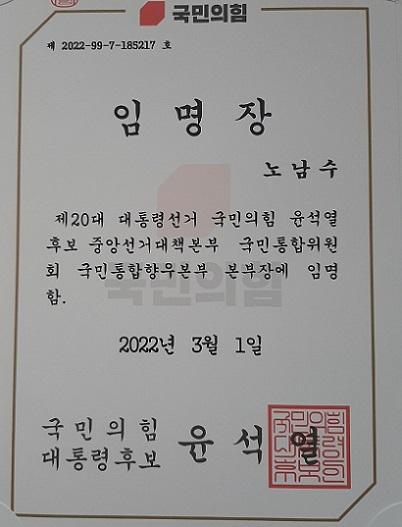 국민의힘
제 2022-99-7-185217 호
임명장
노남수
제20대 대통령선거 국민의힘 윤석열
후보 중앙선거대책본부 국민통합위원
회 국민통합향우본부 본부장에 임명
함.
2022년 3월 1일
국민의힘
대통령후보 윤석열
국민의힘